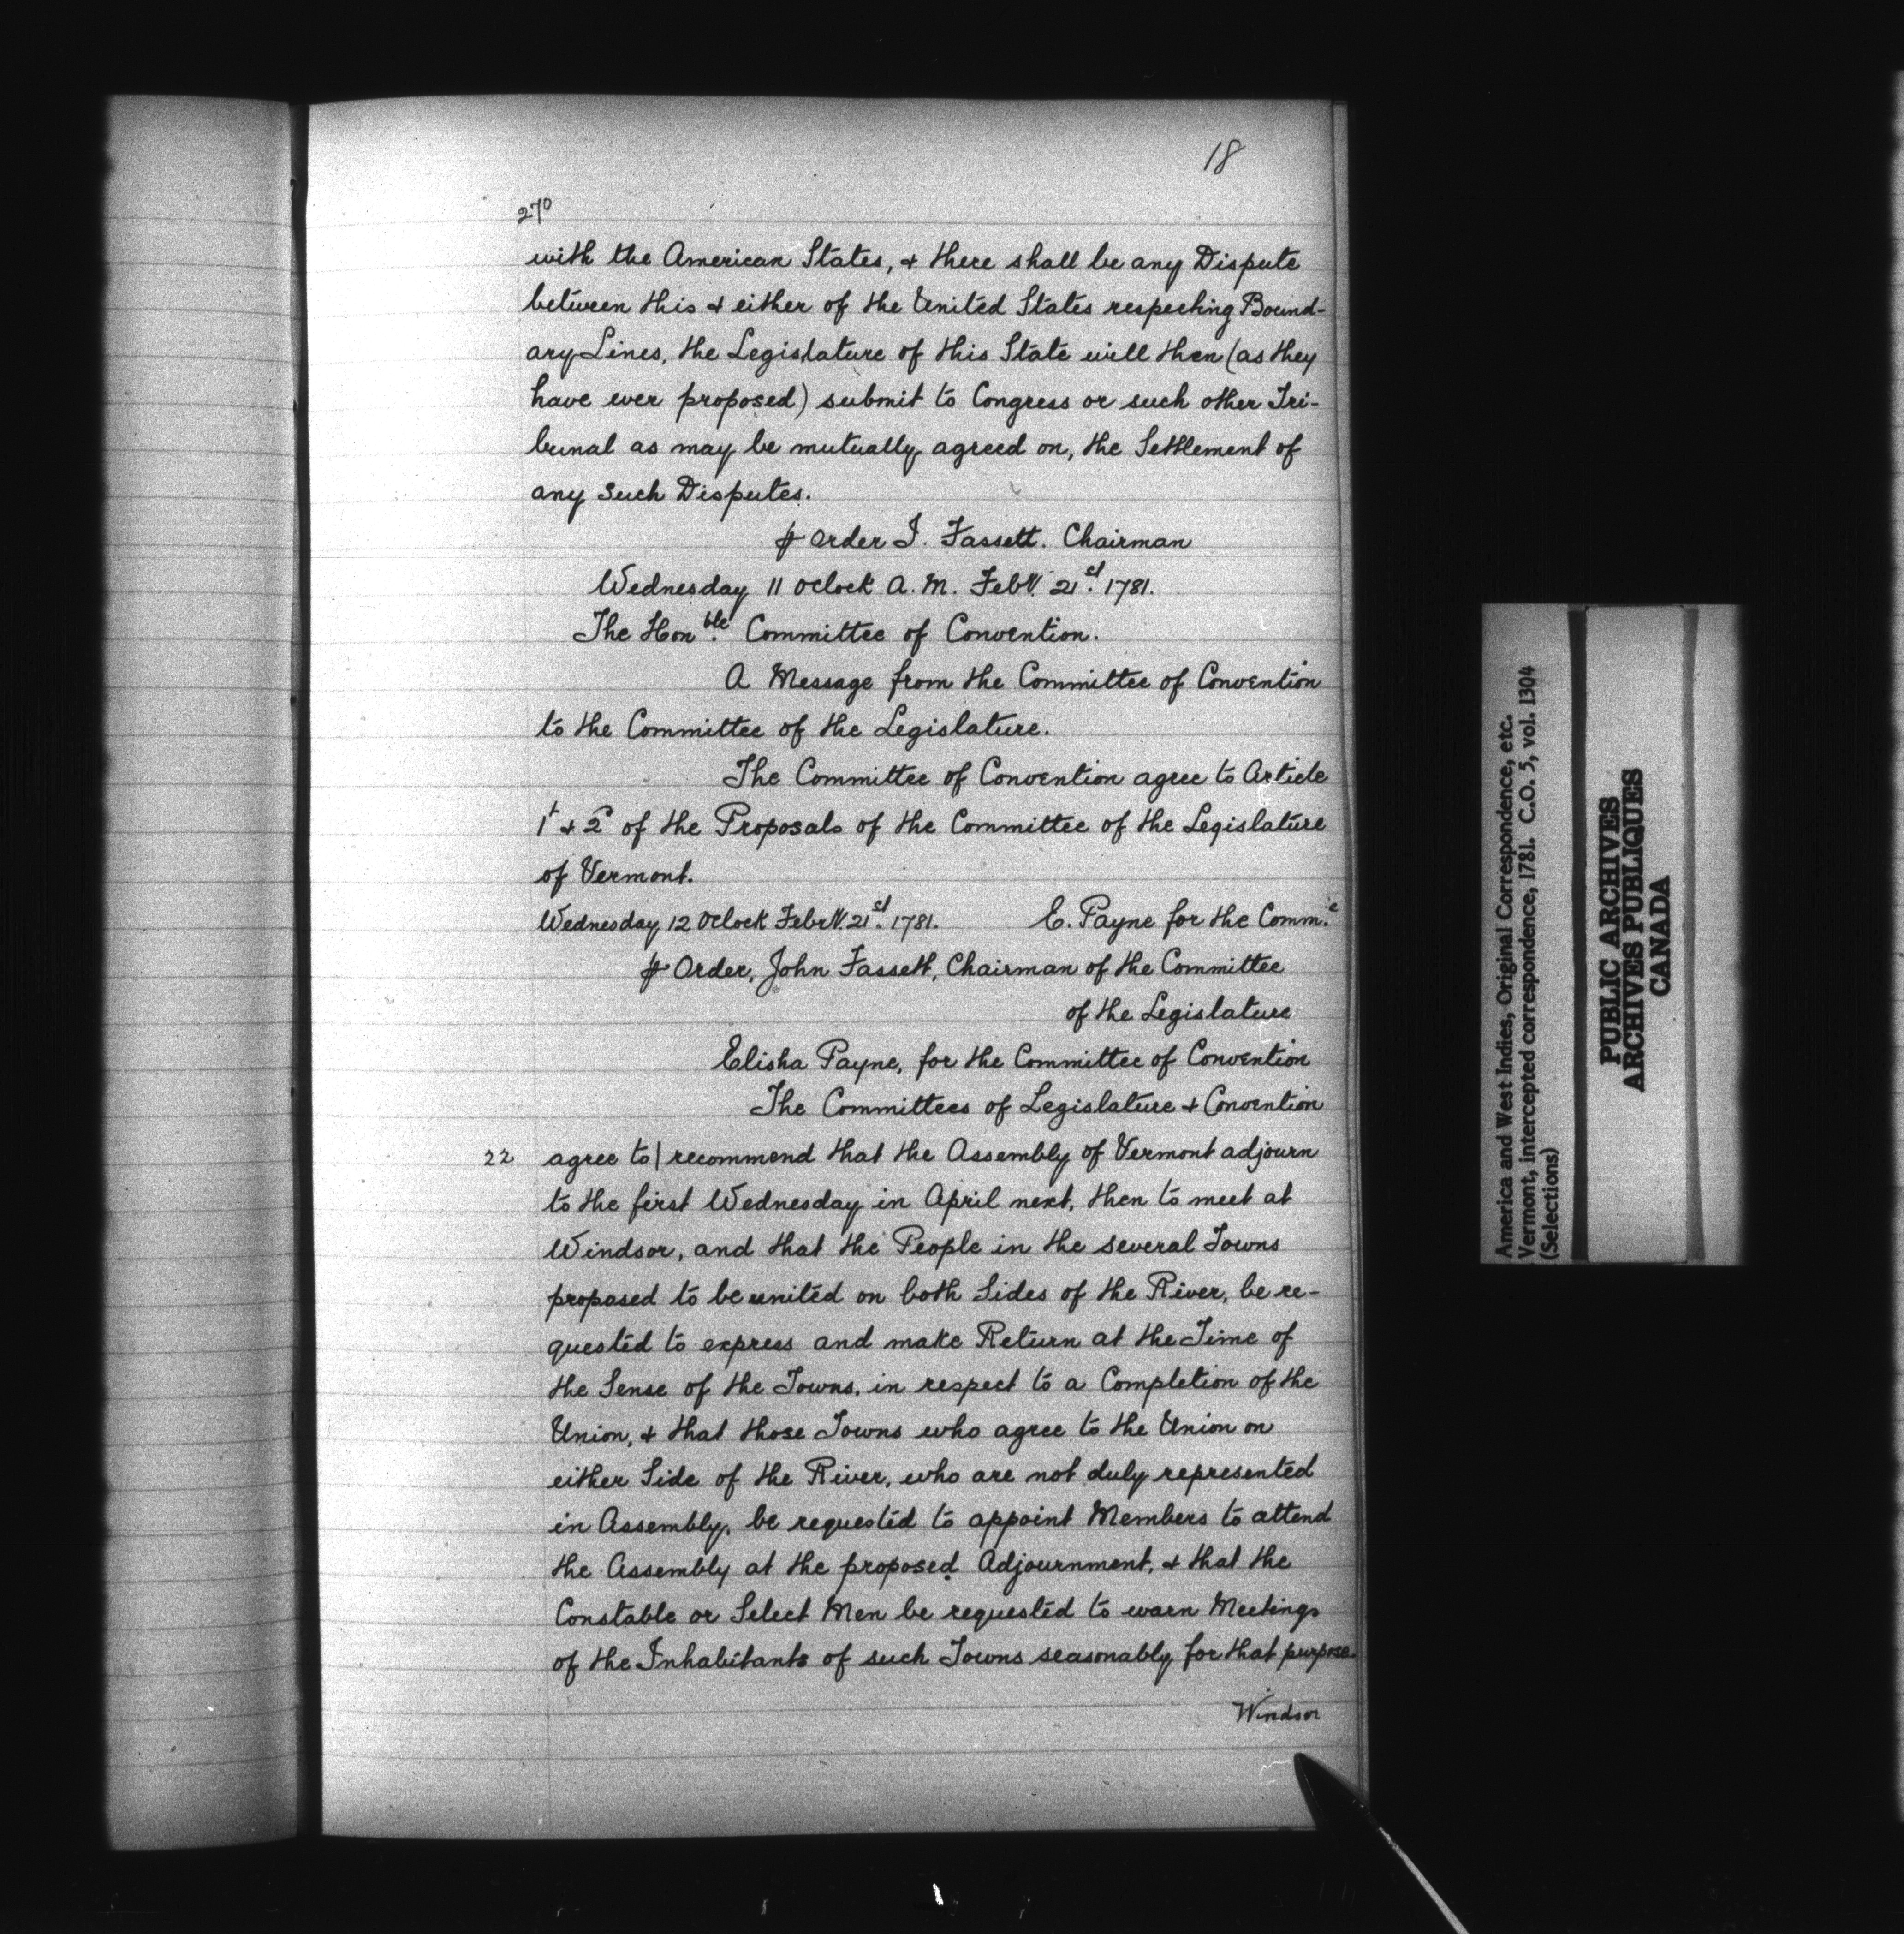 18
270
with the American States, & there shall be any Dispute
between this & either of the United States respecting Bound-
ary Lines, the Legislature of this State will then (as they
have ever proposed) submit to Congress or such other Tri-
bunal as may be mutually agreed on, the Settlement of
any such Disputes.
⅌ Order I. Fassett. Chairman
Wednesday 11 oclock A. M. Feb.ry 21st. 1781.
The Honble. Committee of Convention.
A Message from the Committee of Convention
to the Committee of the Legislature.
The Committee of Convention agree to Article
1t & 2d of the Proposals of the Committee of the Legislature
of Vermont.
Wednesday 12 Oclock Febry. 21st. 1781. E. Payne for the Comm.e
⅌ Order, John Fassett, Chairman of the Committee
of the Legislature
Elisha Payne, for the Committee of Convention
The Committees of Legislature & Convention
22 agree to | recommend that the Assembly of Vermont adjourn
to the first Wednesday in April next, then to meet at
Windsor, and that the People in the several Towns
proposed to be united on both Sides of the River, be re-
quested to express and make Return at the Time of
the Sense of the Towns, in respect to a Completion of the
Union, & that those Towns who agree to the Union on
either Side of the River, who are not duly represented
in Assembly, be requested to appoint Members to attend
the Assembly at the proposed Adjournment, & that the
Constable or Select Men be requested to warn Meetings
of the Inhabitants of such Towns seasonably for that purpose.
Windsor
America and West Indies, Original Correspondence, etc.
Vermont, intercepted correspondence, 1781. C.O. 5, vol. 1304
(Selections)
PUBLIC ARCHIVES
ARCHIVES PUBLIQUES
CANADA